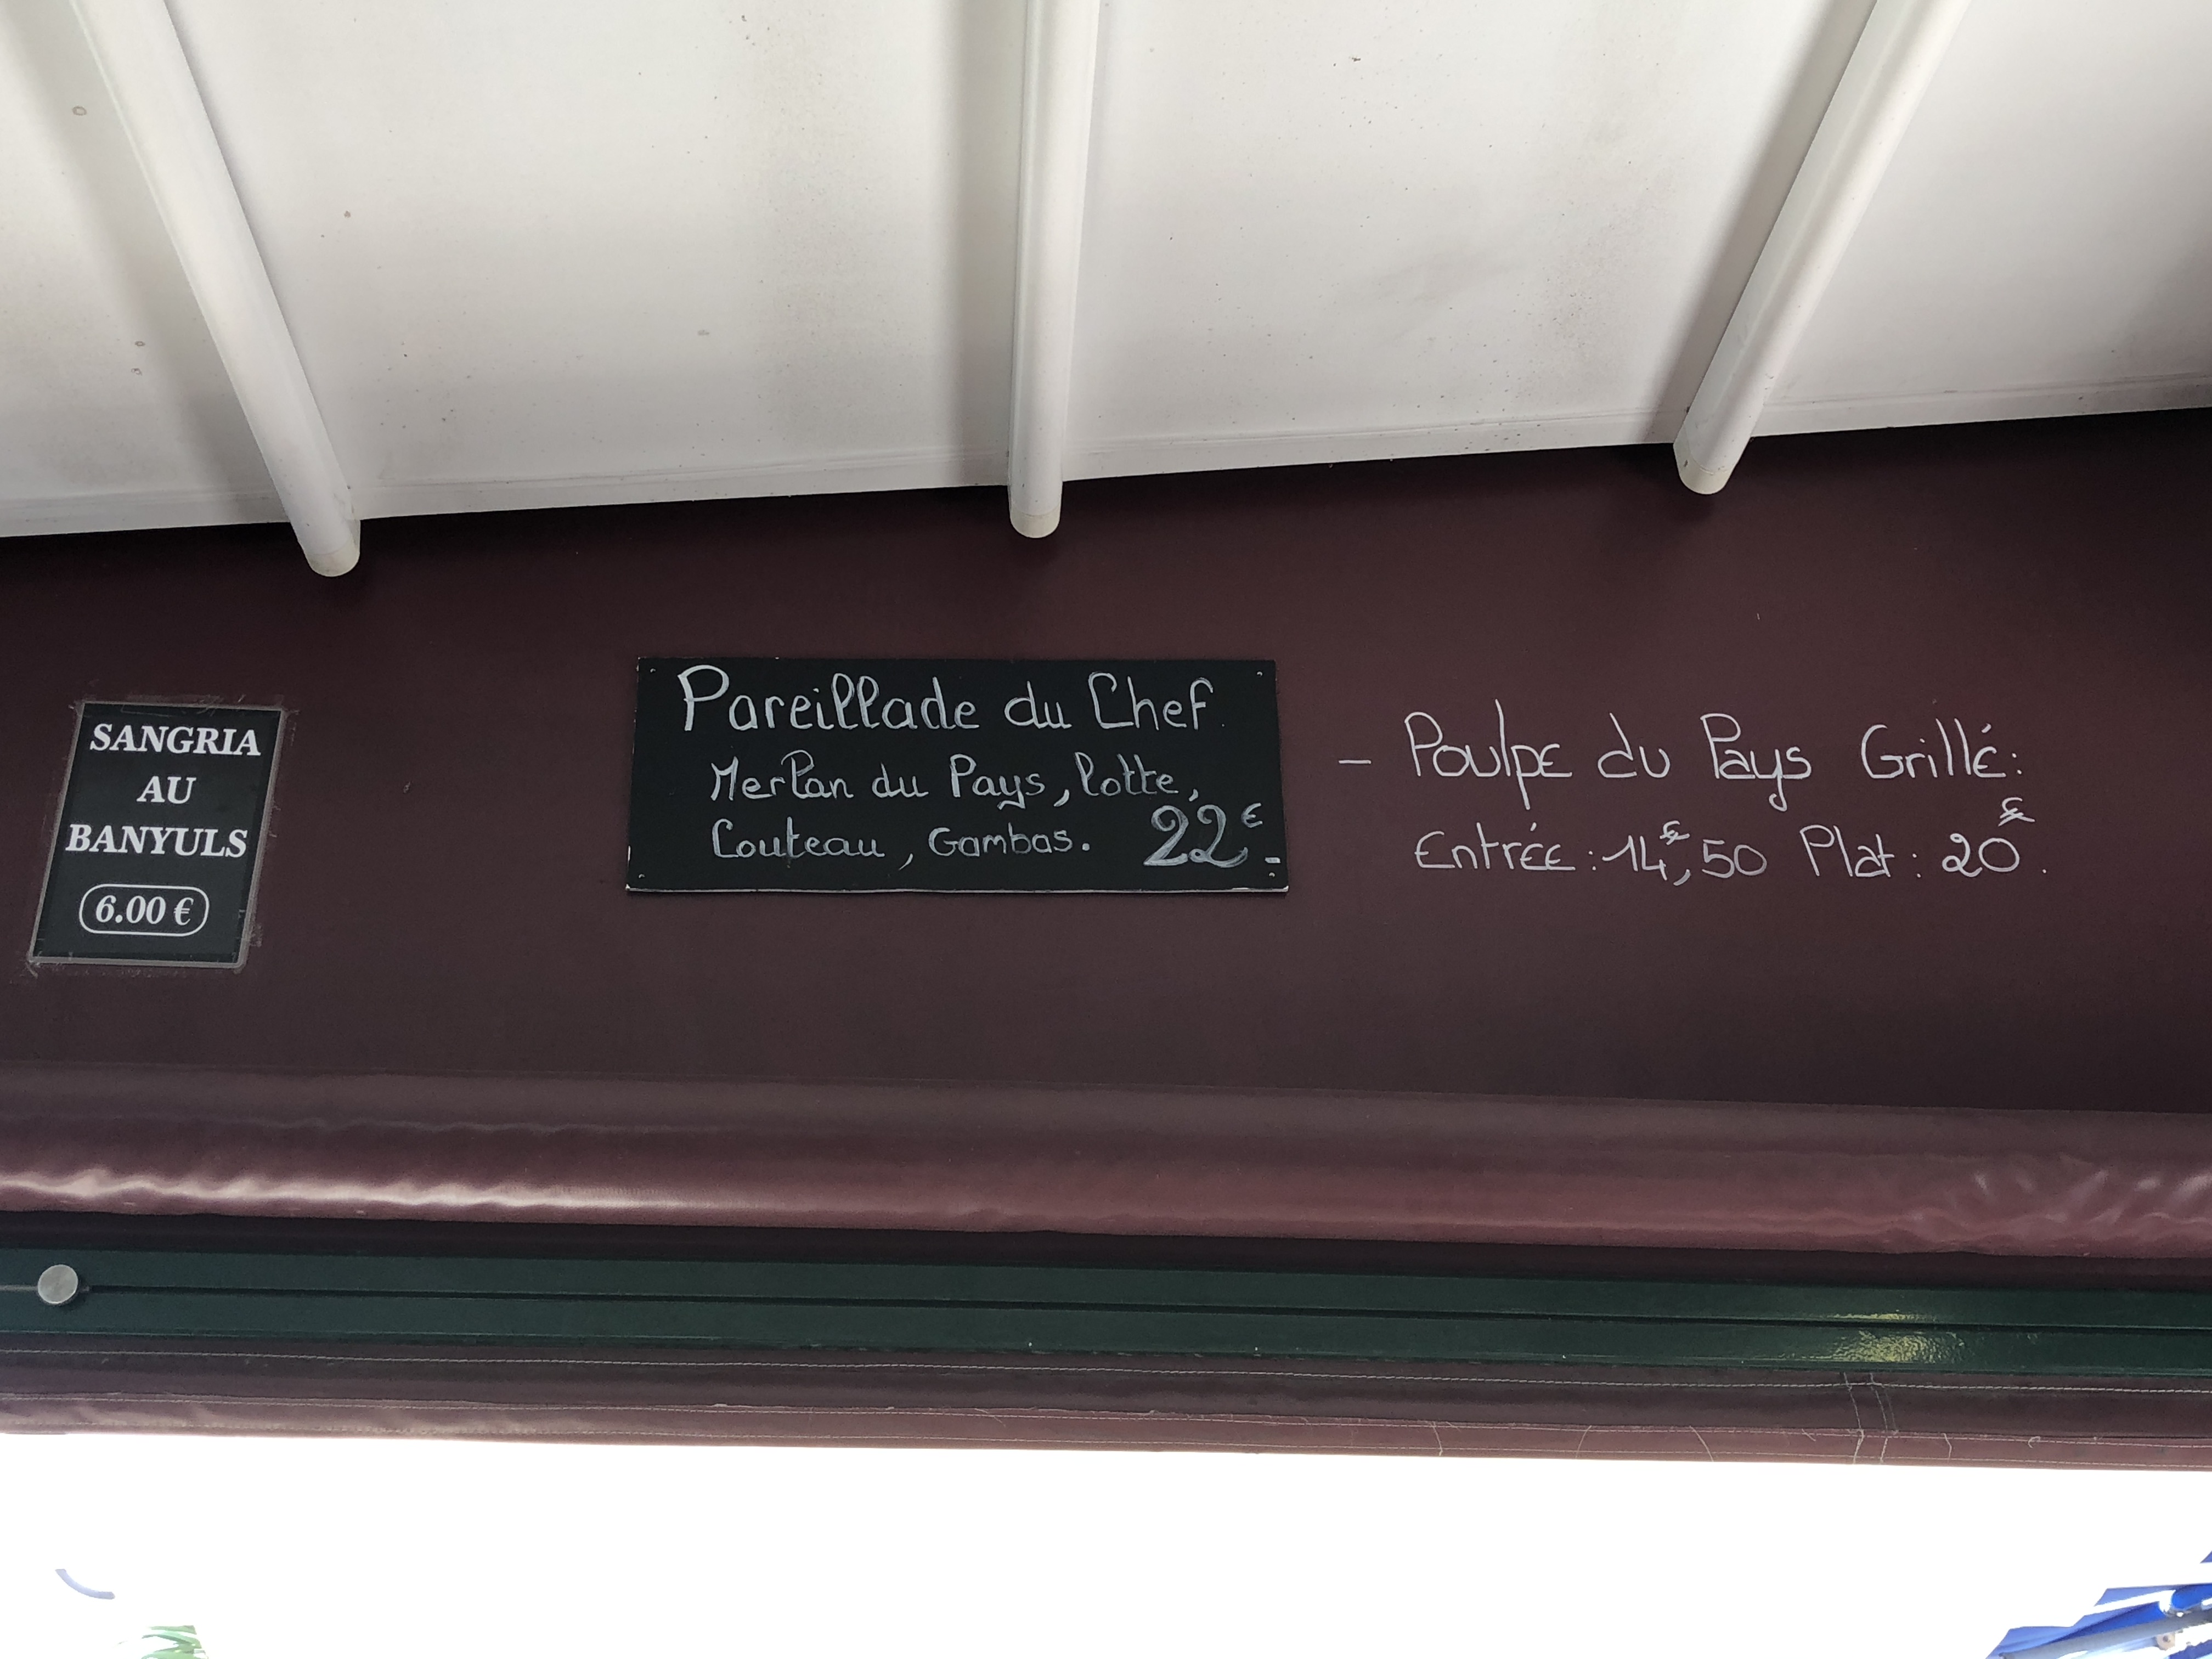 SANGRIA
AU
BANYULS
6.00 €
Pareillade du Chef.
Merlan du Pays, lotte,
Couteau, Gambas. 22€-
- Poulpe du Pays Grillé:
Entrée: 14€,50 Plat: 20€.